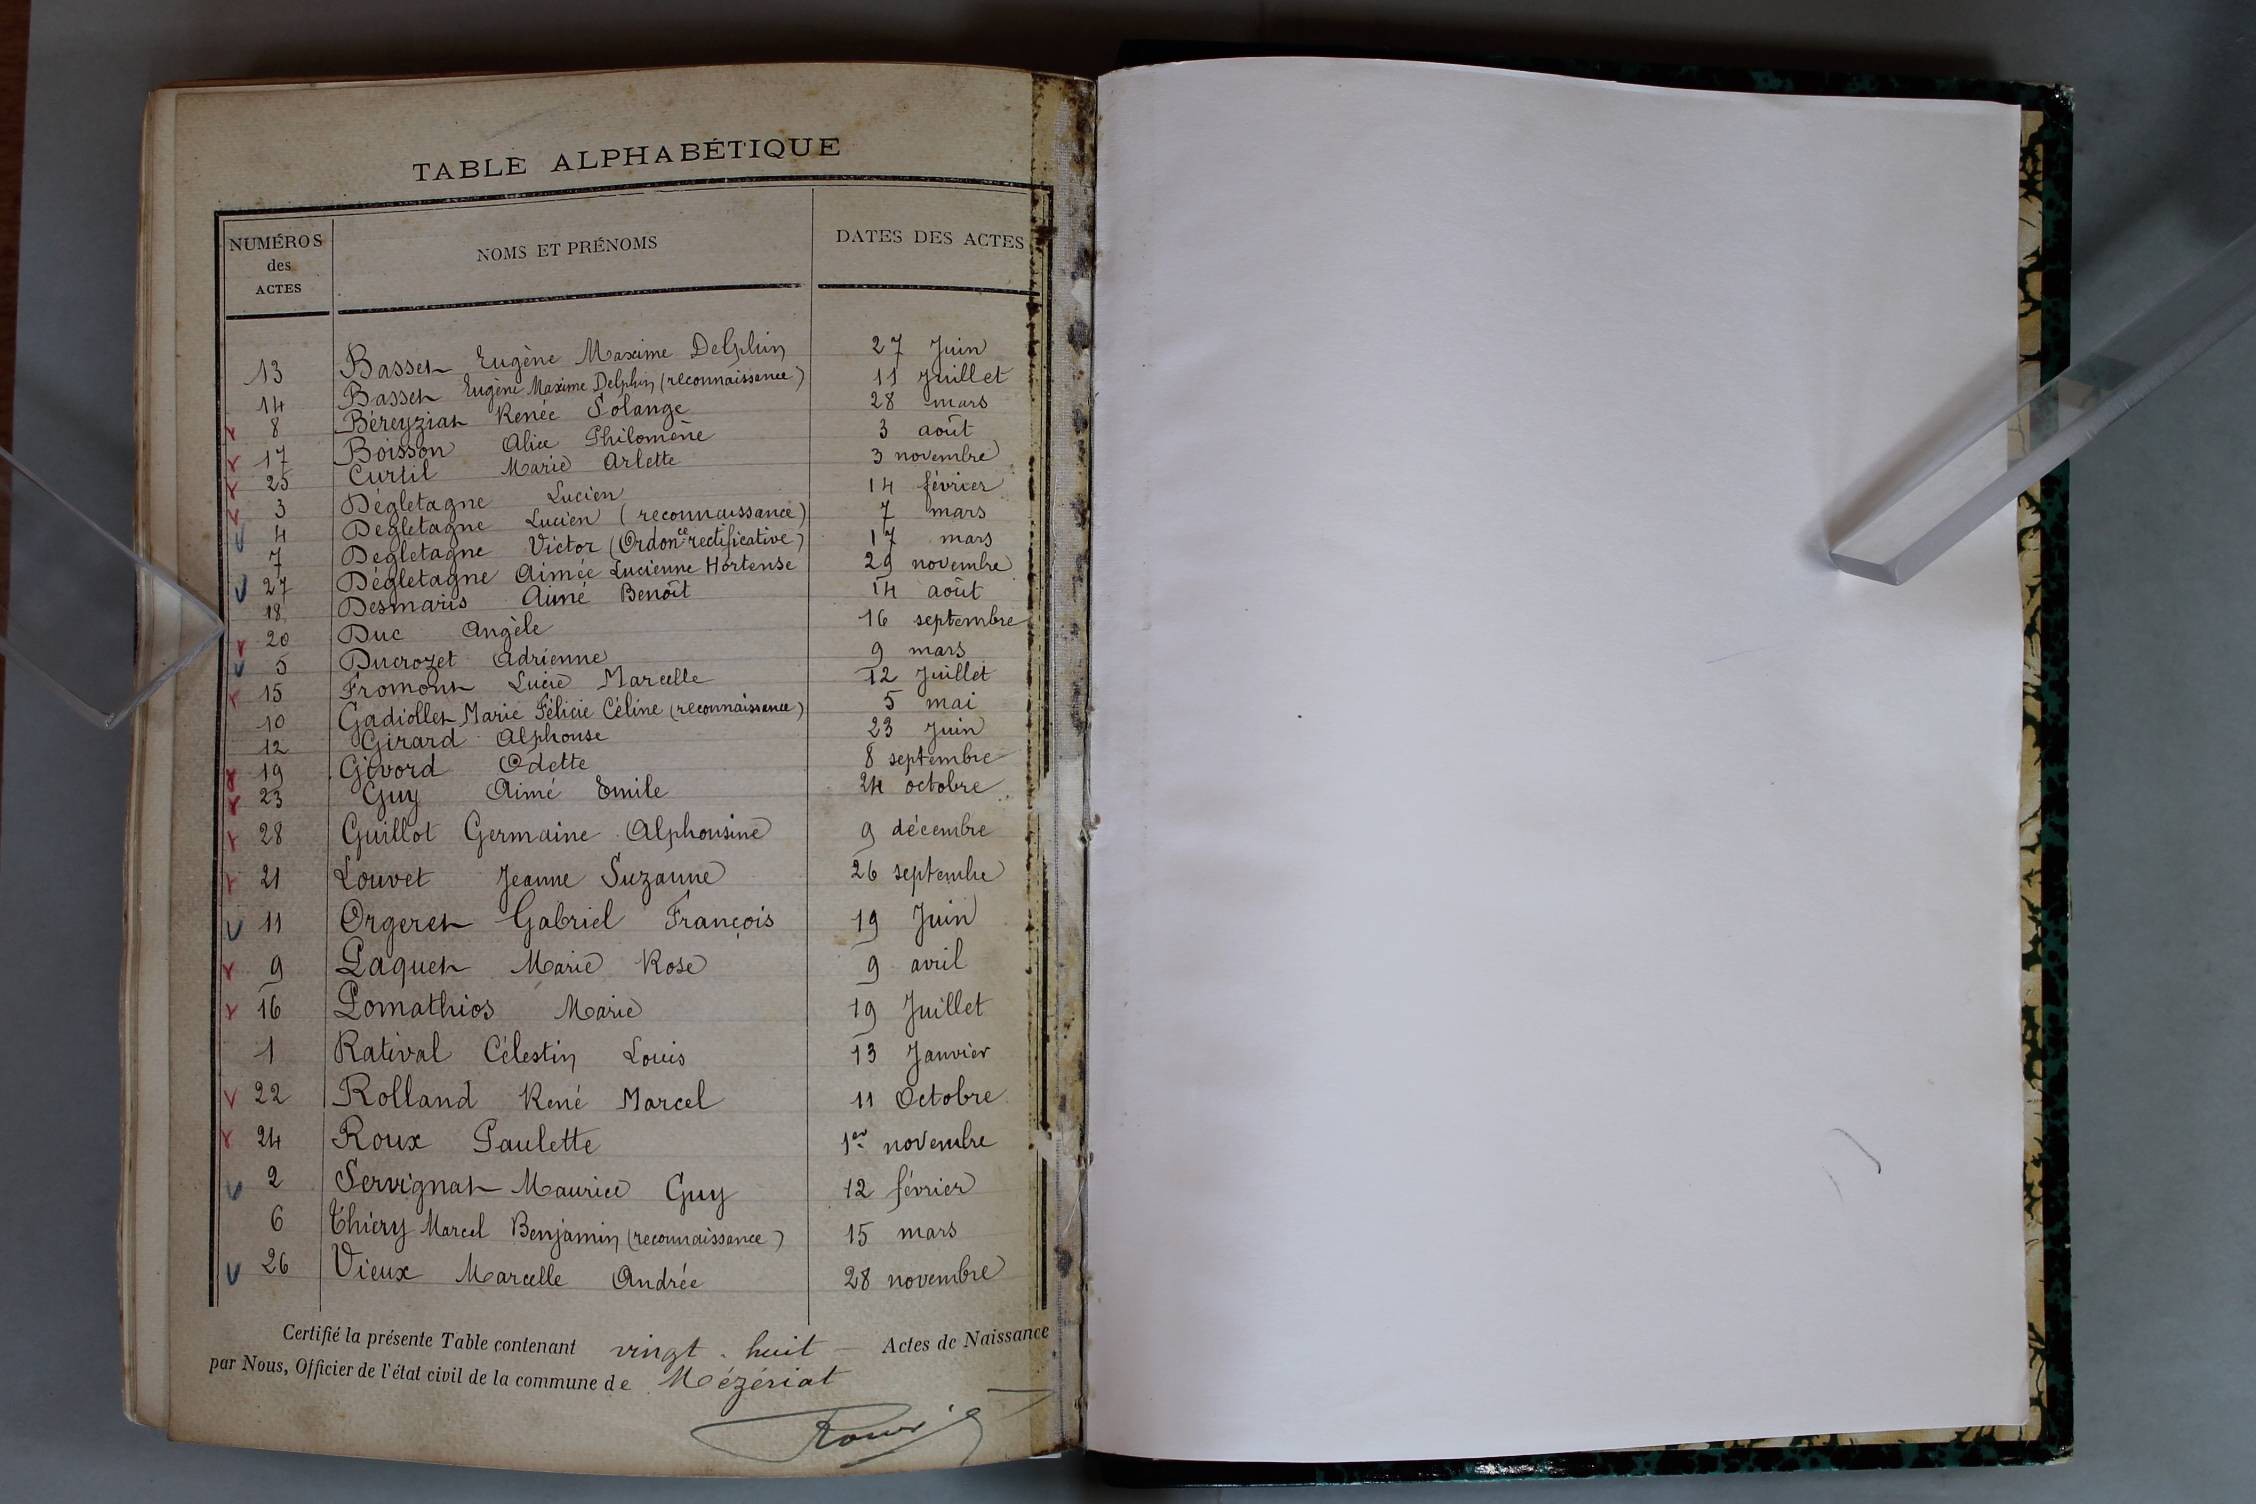 TABLE ALPHABÉTIQUE
NUMÉROS des ACTES NOMS ET PRÉNOMS DATES DES ACTES
13 Basset Eugène Maxime Delphin 27 Juin
14 Basset Eugène Maxime Delphin (reconnaissance) 11 Juillet
8 Béreyziat Renée Solange 28 mars
17 Boisson Alice Philomène 3 août
25 Curtil Marie Arlette 3 novembre
3 Dégletagne Lucien 14 février
4 Degletagne Lucien (reconnaissance) 7 mars
7 Degletagne Victor (Ordonce rectificative) 17 mars
27 Dégletagne Aimée Lucienne Hortense 29 novembre
18 Desmaris Aimé Benoît 14 août
20 Duc Angèle 16 septembre
5 Ducrozet Adrienne 9 mars
15 Fromont Lucie Marcelle 12 Juillet
10 Gadiollet Marie Félicie Céline (reconnaissance) 5 mai
12 Girard Alphonse 23 Juin
19 Givord Odette 8 septembre
23 Guy Aimé Emile 24 octobre
28 Guillot Germaine Alphonsine 9 décembre
21 Louvet Jeanne Suzanne 26 septembre
11 Orgeret Gabriel François 19 Juin
9 Paquet Marie Rose 9 avril
16 Pomathios Marie 19 Juillet
1 Rativat Célestin Louis 13 Janvier
22 Rolland René Marcel 11 Octobre
24 Roux Paulette 1er novembre
2 Servignat Maurice Guy 12 février
6 Thiéry Marcel Benjamin (reconnaissance) 15 mars
26 Vieux Marcelle Andrée 28 novembre
Certifié la présente Table contenant vingt-huit Actes de Naissance
par Nous, Officier de l'état civil de la commune de Mézériat